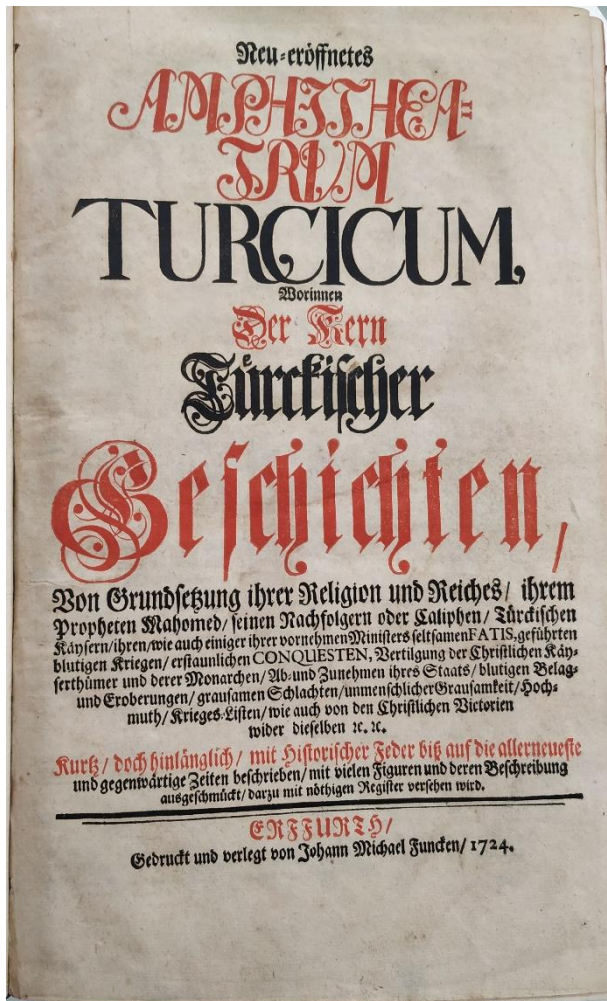 Neu-eröffnetes
AMPHITHEA-
TRUM
TURCICUM,
Worinnen
Der Kern
Türckischer
Geschichten,
Von Grundsetzung ihrer Religion und Reiches/ ihrem
Propheten Mahomed/ seinen Nachfolgern oder Caliphen/ Türckischen
Käysern/ihren/wie auch einiger ihrer vornehmen Ministers seltsamen FATIS, geführten
blutigen Kriegen/ erstaunlichen CONQUESTEN, Vertilgung der Christlichen Käy-
serthümer und derer Monarchen/ Ab- und Zunehmen ihres Staats/ blutigen Belag-
und Eroberungen/ grausamen Schlachten/unmenschlicher Grausamkeit/ Hoch-
muth/ Krieges-Listen/ wie auch von den Christlichen Victorien
wider dieselben ꝛc. ꝛc.
Kurtz/ doch hinlänglich/ mit Historischer Feder biß auf die allerneueste
und gegenwärtige Zeiten beschrieben/ mit vielen Figuren und deren Beschreibung
ausgeschmückt/ darzu mit nöthigen Register versehen wird.
ERFFURTH/
Gedruckt und verlegt von Johann Michael Funcken/ 1724.